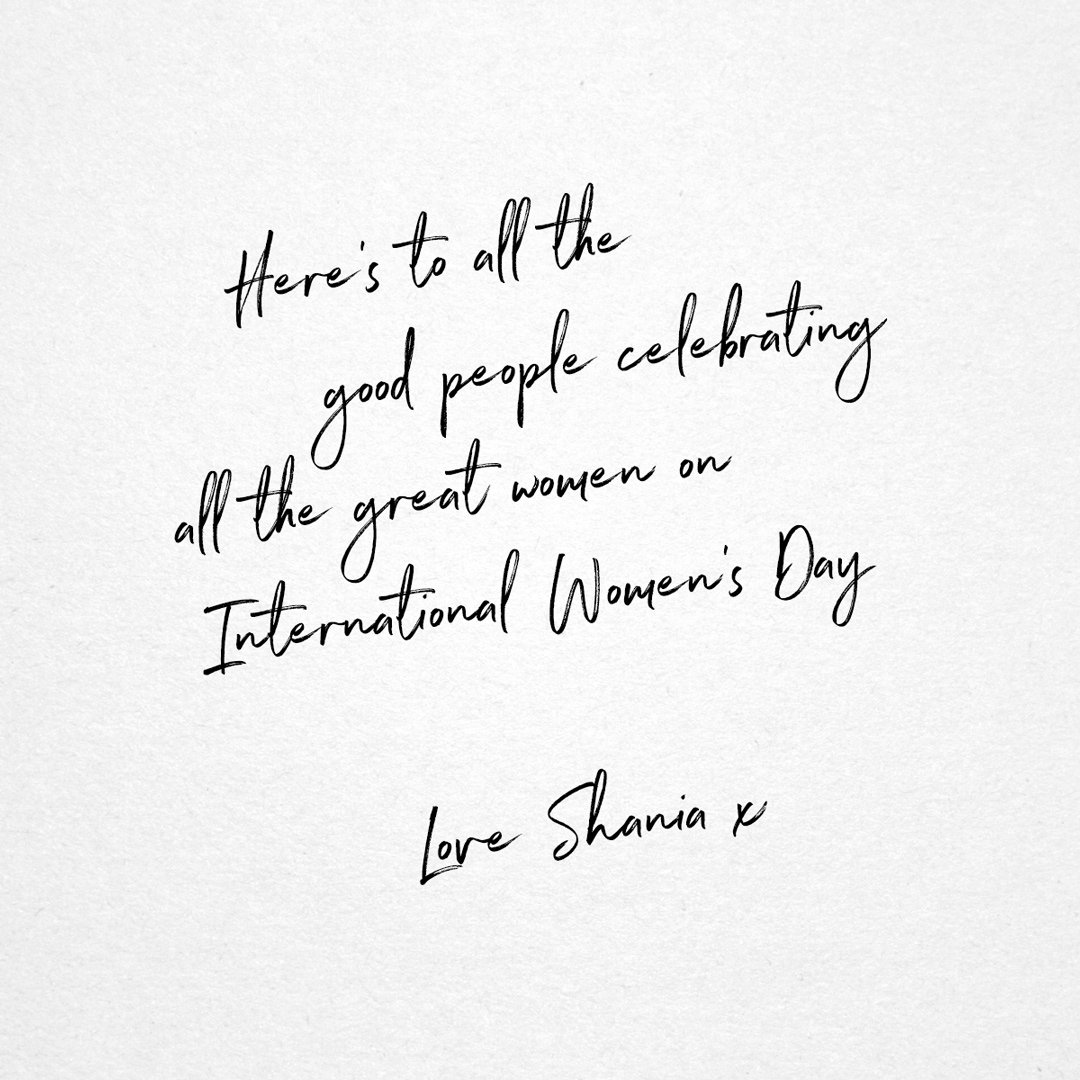 Here's to all the
good people celebrating
all the great women on
International Women's Day
Love Shania x